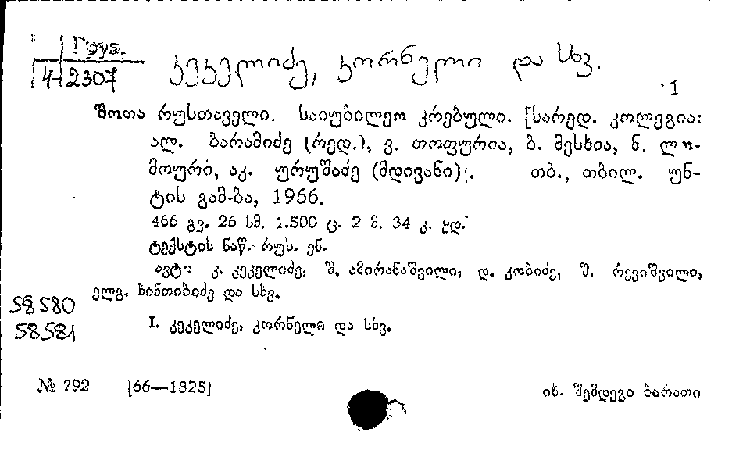 Груз.
4-2307
კეკელიძე, კორნელი და სხვ.
1
შოთა რუსთაველი. საიუბილეო კრებული. [სარედ. კოლეგია:
ალ. ბარამიძე (რედ.), ვ. თოფურია, ბ. მესხია, ნ. ლო-
მოური, აკ. ურუშაძე (მდივანი). თბ., თბილ. უნ-
ტის გამ-ბა, 1966.
466 გვ. 26 სმ. 1.500 ც. 2 მ. 34 კ. ყდ.
ტექსტის ნაწ. რუს. ენ.
ავტ: კ. კეკელიძე, შ. ამირანაშვილი, დ. კობიძე, შ. რევიშვილი,
ელგ. ხინთიბიძე და სხვ.
58580
58581
I. კეკელიძე, კორნელი და სხვ.
№ 792 [66—1825]
იხ. შემდეგი ბარათი